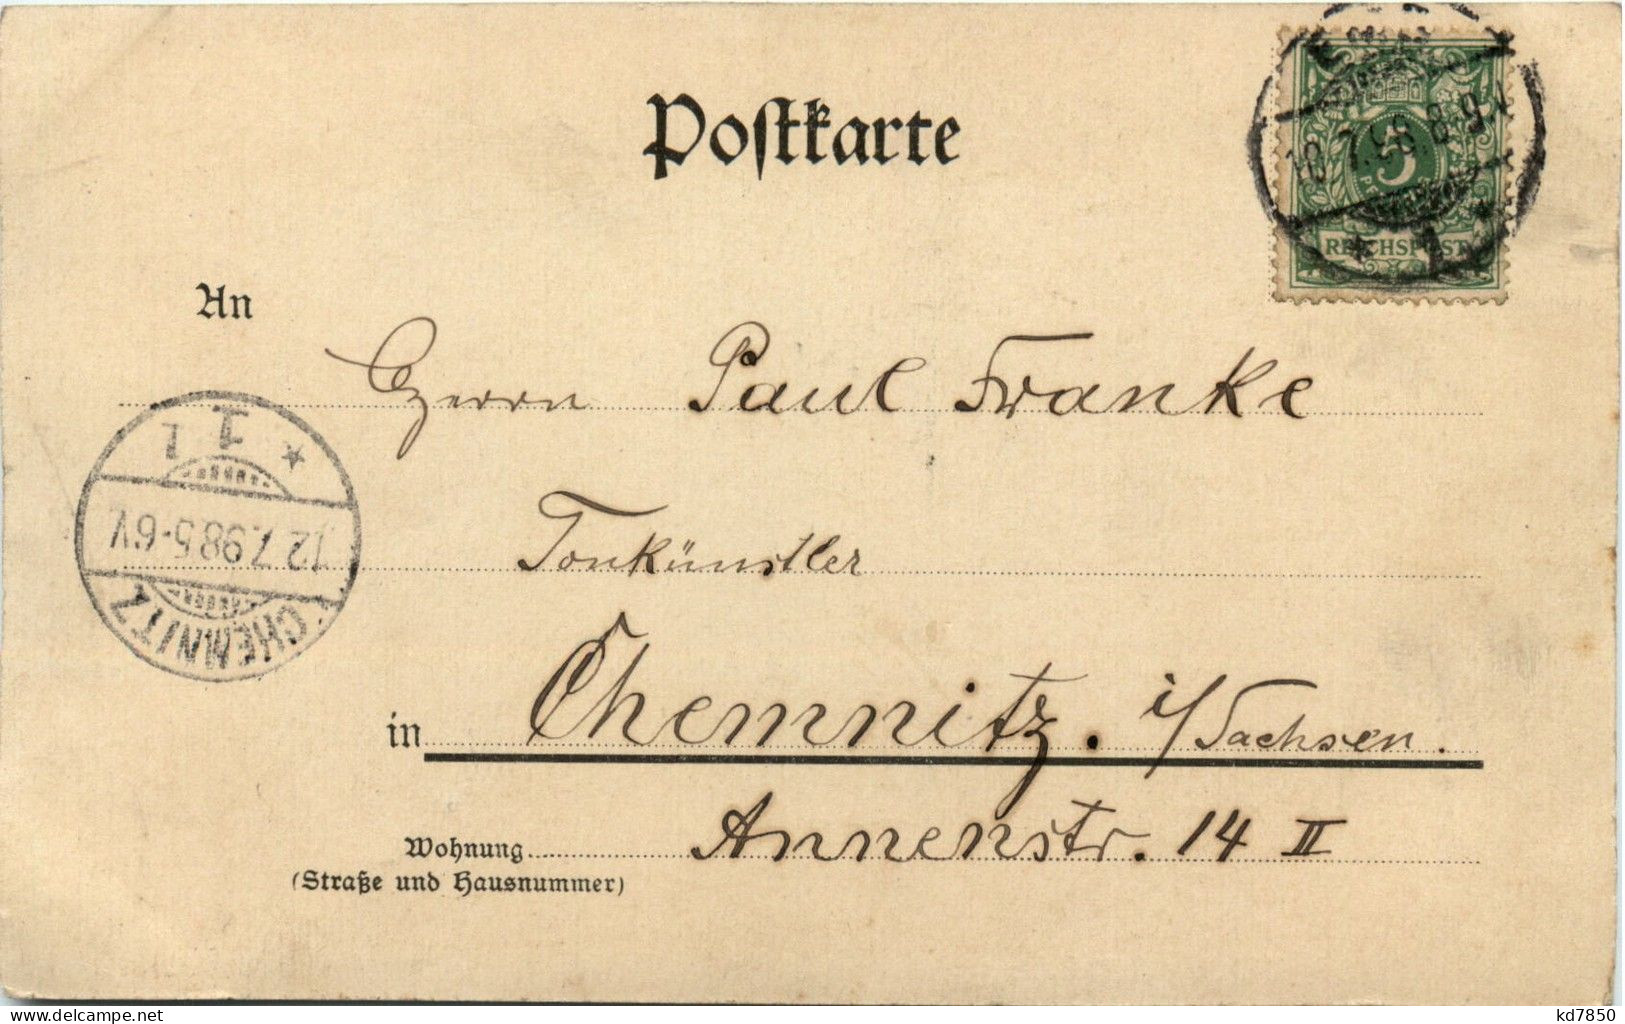 Postkarte
10.7.98.8-9.V
5
REICHSPOST
1
An
Herrn Paul Franke
Tonkünstler
in Chemnitz. i/Sachsen.
Wohnung Annenstr. 14 II
(Straße und Hausnummer)
CHEMNITZ
12.7.98.5-6V.
1
www.delcampe.net
kd7850